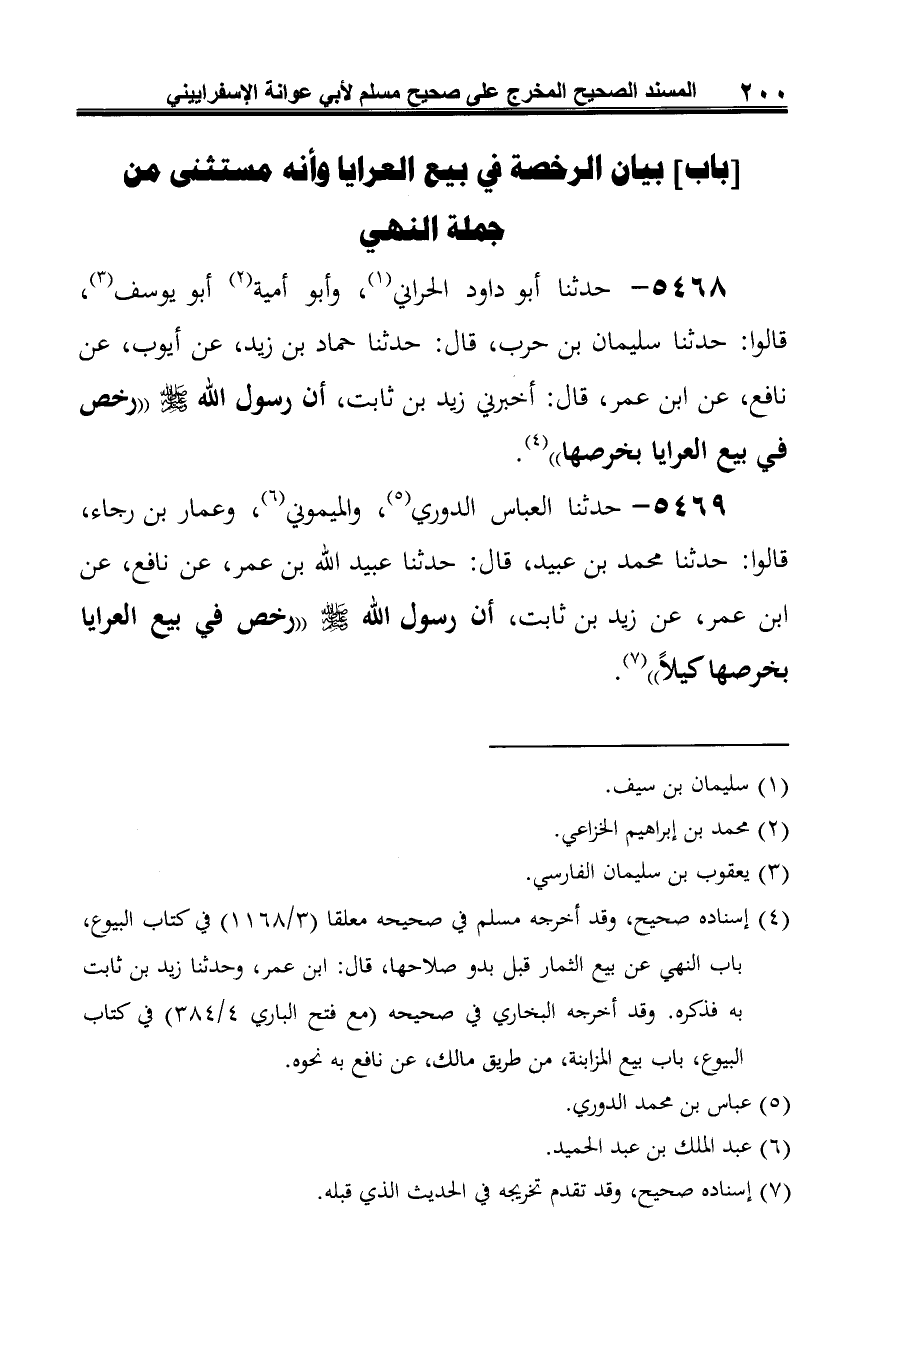 ٢٠٠ المسند الصحيح المخرج على صحيح مسلم لأبي عوانة الإسفراييني
[باب] بيان الرخصة في بيع العرايا وأنه مستثنى من
جملة النهي
٥٤٦٨- حدثنا أبو داود الحراني(١)، وأبو أمية(٢) أبو يوسف(٣)،
قالوا: حدثنا سليمان بن حرب، قال: حدثنا حماد بن زيد، عن أيوب، عن
نافع، عن ابن عمر، قال: أخبرني زيد بن ثابت، أن رسول الله ﷺ ((رخص
في بيع العرايا بخرصها))(٤).
٥٤٦٩- حدثنا العباس الدوري(٥)، والميموني(٦)، وعمار بن رجاء،
قالوا: حدثنا محمد بن عبيد، قال: حدثنا عبيد الله بن عمر، عن نافع، عن
ابن عمر، عن زيد بن ثابت، أن رسول الله ﷺ ((رخص في بيع العرايا
بخرصها كيلاً))(٧).
(١) سليمان بن سيف.
(٢) محمد بن إبراهيم الخزاعي.
(٣) يعقوب بن سليمان الفارسي.
(٤) إسناده صحيح، وقد أخرجه مسلم في صحيحه معلقا (١١٦٨/٣) في كتاب البيوع،
باب النهي عن بيع الثمار قبل بدو صلاحها، قال: ابن عمر، وحدثنا زيد بن ثابت
به فذكره. وقد أخرجه البخاري في صحيحه (مع فتح الباري ٣٨٤/٤) في كتاب
البيوع، باب بيع المزابنة، من طريق مالك، عن نافع به نحوه.
(٥) عباس بن محمد الدوري.
(٦) عبد الملك بن عبد الحميد.
(٧) إسناده صحيح، وقد تقدم تخريجه في الحديث الذي قبله.